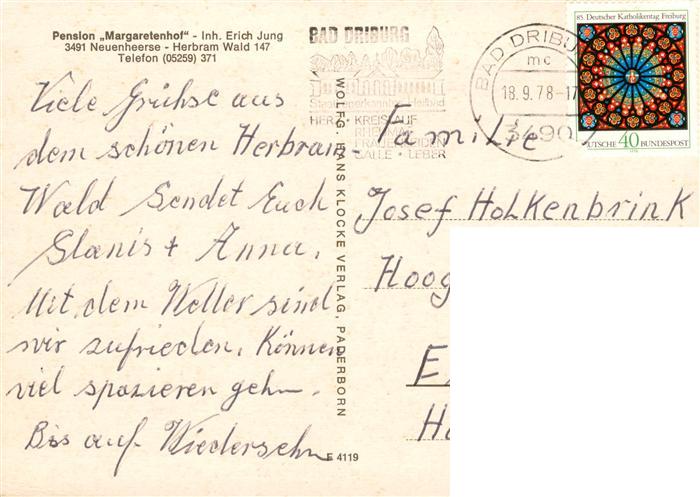 Pension „Margaretenhof" - Inh. Erich Jung
3491 Neuenheerse - Herbram Wald 147
Telefon (05259) 371
Viele Grühse aus
dem schönen Herbram-
Wald Sendet Euch
Slanis + Anna.
Mit dem Wetter sind
wir zufrieden, Können
viel spazieren gehn.
Bis auf Wiedersehn
E 4119
WOLFG. HANS KLOCKE VERLAG, PADERBORN
BAD DRIBURG
Staatl. anerkannt. Heilbad
HERZ · KREISLAUF
RHEUMA
FRAUENLEIDEN
GALLE · LEBER
BAD DRIBU
mc
18.9.78-17
3490
85. Deutscher Katholikentag Freiburg
DEUTSCHE 40 BUNDESPOST
Familie
Josef Holkenbrink
Hoog
E
H